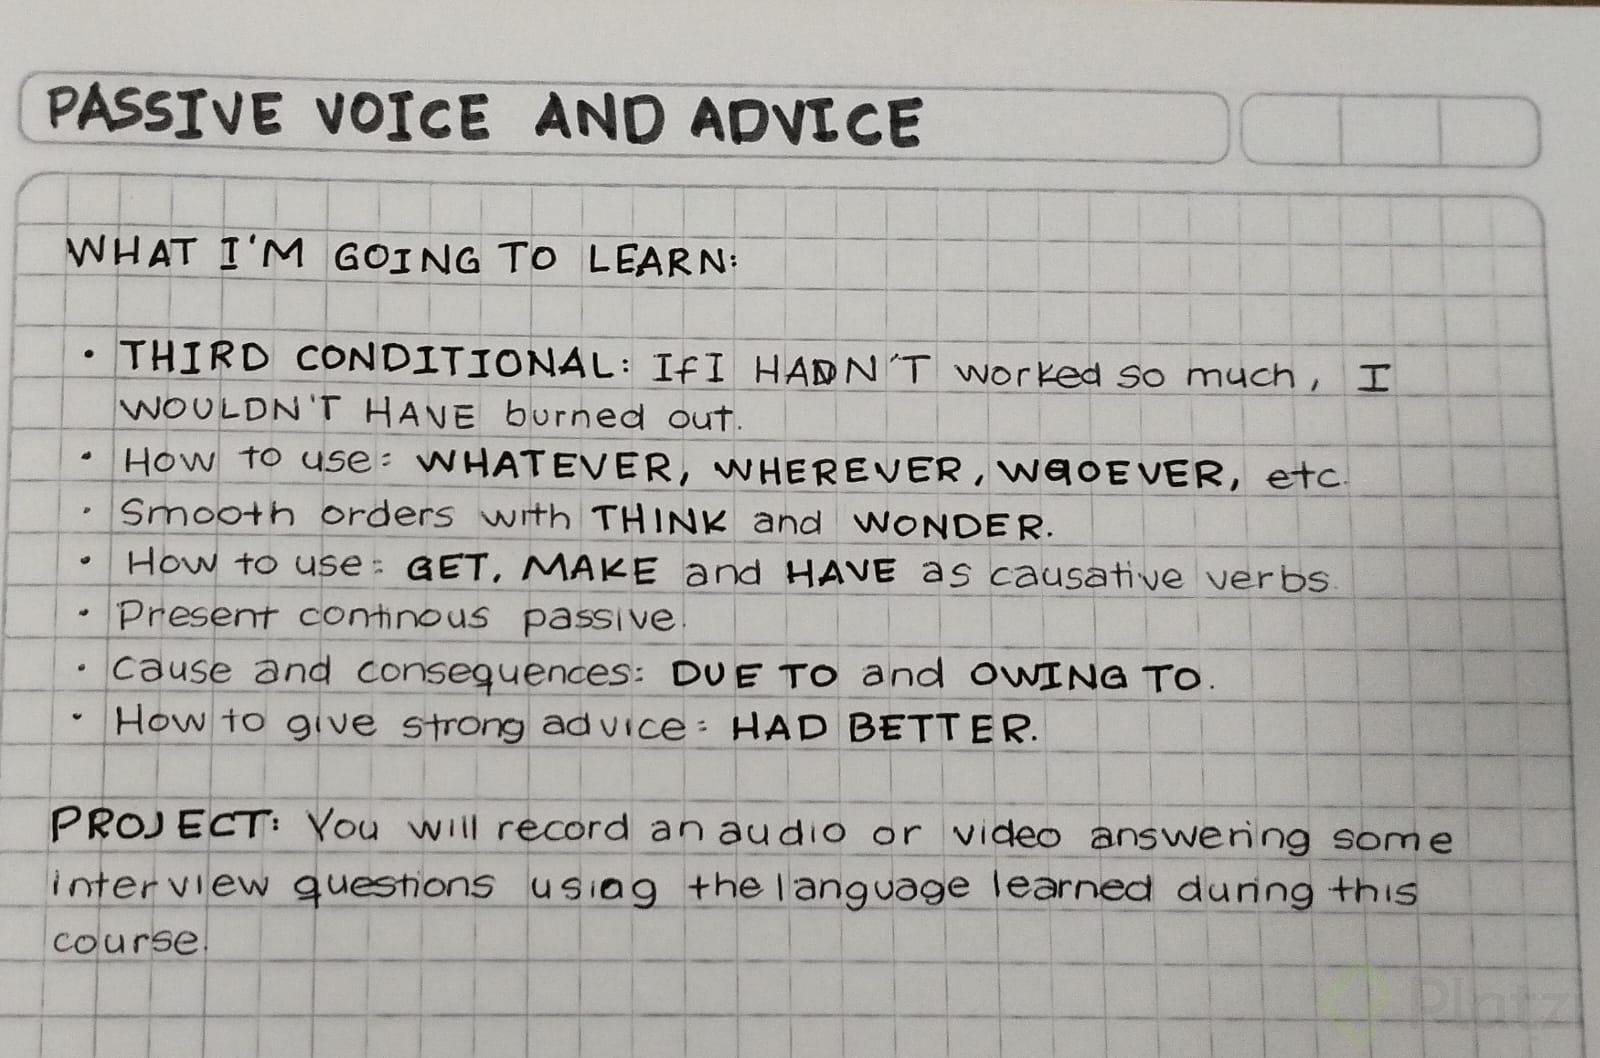 PASSIVE VOICE AND ADVICE
WHAT I'M GOING TO LEARN:
• THIRD CONDITIONAL: If I HADN'T worked so much, I
WOULDN'T HAVE burned out.
• How to use: WHATEVER, WHEREVER, WHOEVER, etc.
• Smooth orders with THINK and WONDER.
• How to use: GET, MAKE and HAVE as causative verbs.
• Present continous passive.
• Cause and consequences: DUE TO and OWING TO.
• How to give strong advice: HAD BETTER.
PROJECT: You will record an audio or video answering some
interview questions using the language learned during this
course.
Platzi